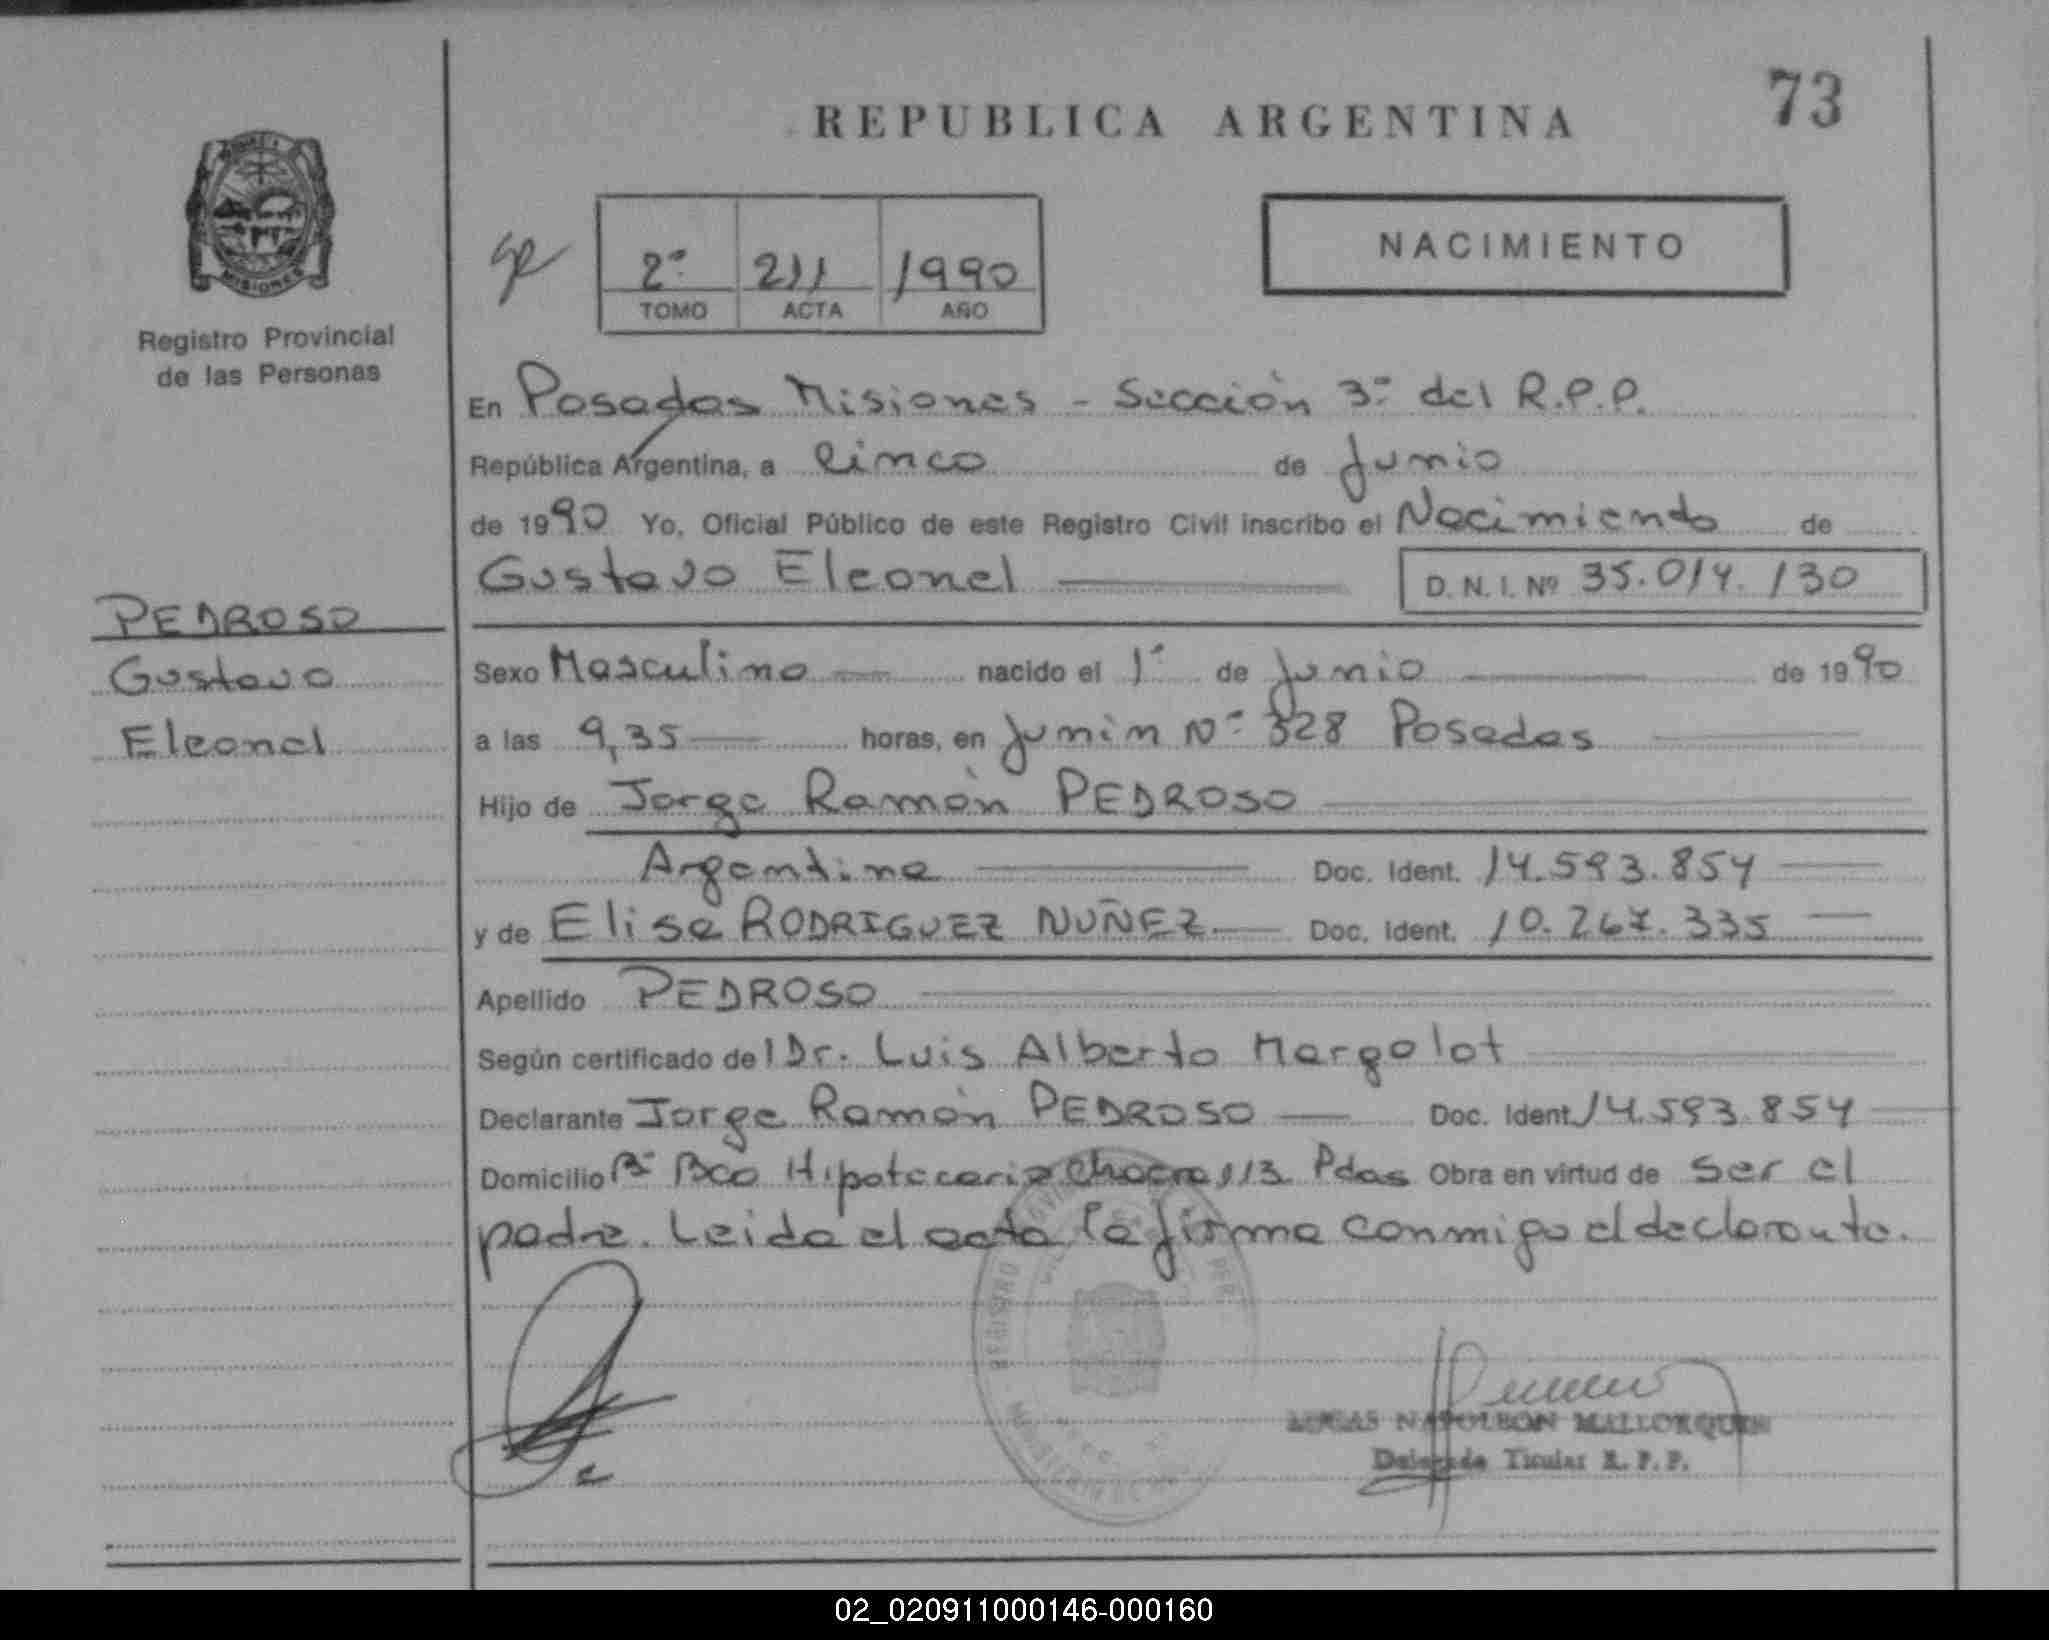 73
REPUBLICA ARGENTINA
MISIONES
Registro Provincial
de las Personas
NACIMIENTO
2º 211 1990
TOMO ACTA AÑO
En Posadas Misiones - Sección 3º del R.P.P.
República Argentina, a Cinco de Junio
de 1990 Yo, Oficial Público de este Registro Civil inscribo el Nacimiento de
Gustavo Eleonel D. N. I. Nº 35.014.130
PEDROSO
Gustavo
Eleonel
Sexo Masculino nacido el 1º de Junio de 1990
a las 9,35 horas, en Junin Nº 328 Posadas
Hijo de Jorge Ramón PEDROSO
Argentina Doc. Ident. 14.593.854
y de Elisa RODRIGUEZ NUÑEZ Doc. Ident. 10.267.335
Apellido PEDROSO
Según certificado del Dr. Luis Alberto Margalot
Declarante Jorge Ramón PEDROSO Doc. Ident. 14.593.854
Domicilio Bº Bco Hipotecario Chacra 113 Pdas Obra en virtud de ser el
padre. Leida el acta la firma conmigo el declarante.
LUCAS NAPOLEON MALLORQUIN
Delegado Titular R. P. P.
02_020911000146-000160